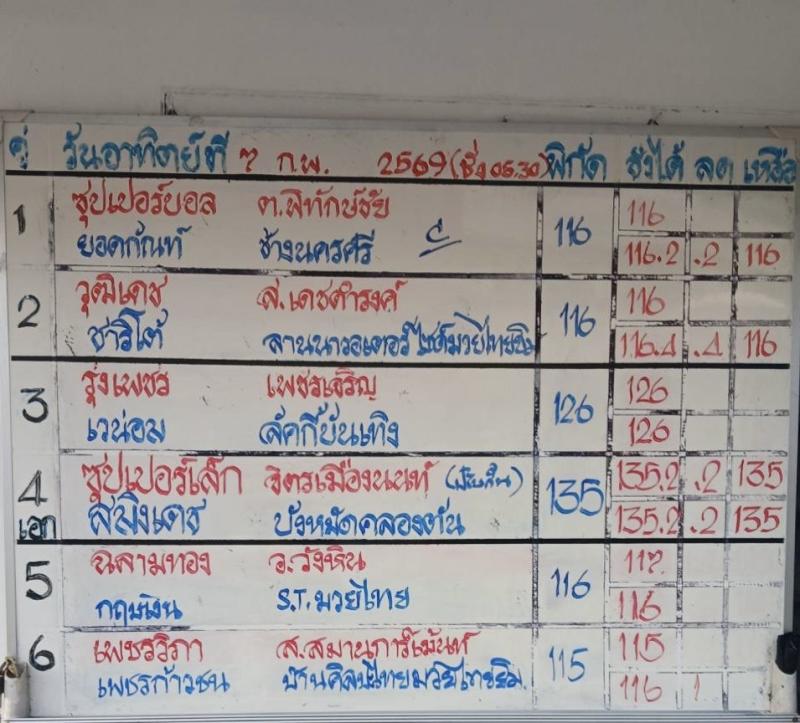 คู่ วันอาทิตย์ที่ ๗ ก.พ. 2569 (ชั่ง 05.30) พิกัด ชั่งได้ ลด เหลือ
1 ซุปเปอร์บอล ต.พิทักษ์ชัย 116 116
ยอดกัณฑ์ ช้างนครศรี 116.2 .2 116
2 วุฒิเดช ส.เดชดำรงค์ 116 116
ชาริโต้ 116.4 .4 116
3 รุ่งเพชร เพชรเจริญ 126 126
เวน่อม ลัคกี้บันเทิง 126
4 ซุปเปอร์เล็ก จิตรเมืองนนท์ 135 135.2 .2 135
เอก สมิงเดช บังหมัดคลองตัน 135.2 .2 135
5 ฉลามทอง อ.วังหิน 116 117
กฤษเงิน S.T.มวยไทย 116
6 เพชรวิภา ส.สมานการ์เม้นท์ 115 115
เพชรก้าวชน 116 1